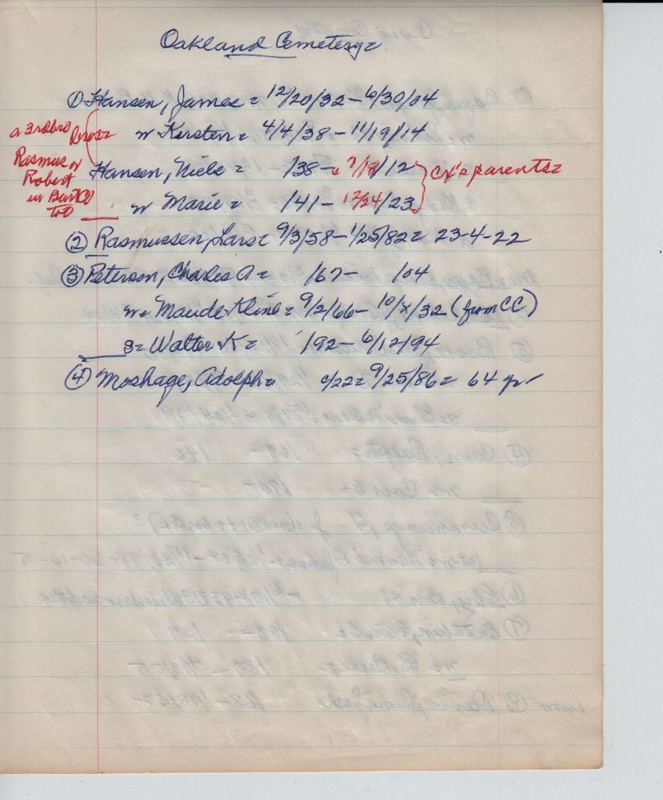 Oakland Cemetery=
① Hansen, James = 12/20/32 – 6/30/04
w Kirsten = 4/4/38 – 11/19/14
a 3rd bro
Rasmus or
Robert
in
Hansen, Niels = /38 – /12
parents=
w Marie = /41 – 12/24/23
② Rasmussen, Lars = 9/3/58 – 1/25/82 = 23-4-22
③ Peterson, Charles A = /67 – /04
w = Maude Kline = 9/2/66 – 10/x/32 (from CC)
s = Walter K = /92 – 6/12/94
④ Moshage, Adolph = c/22 = 9/25/86 = 64 yr